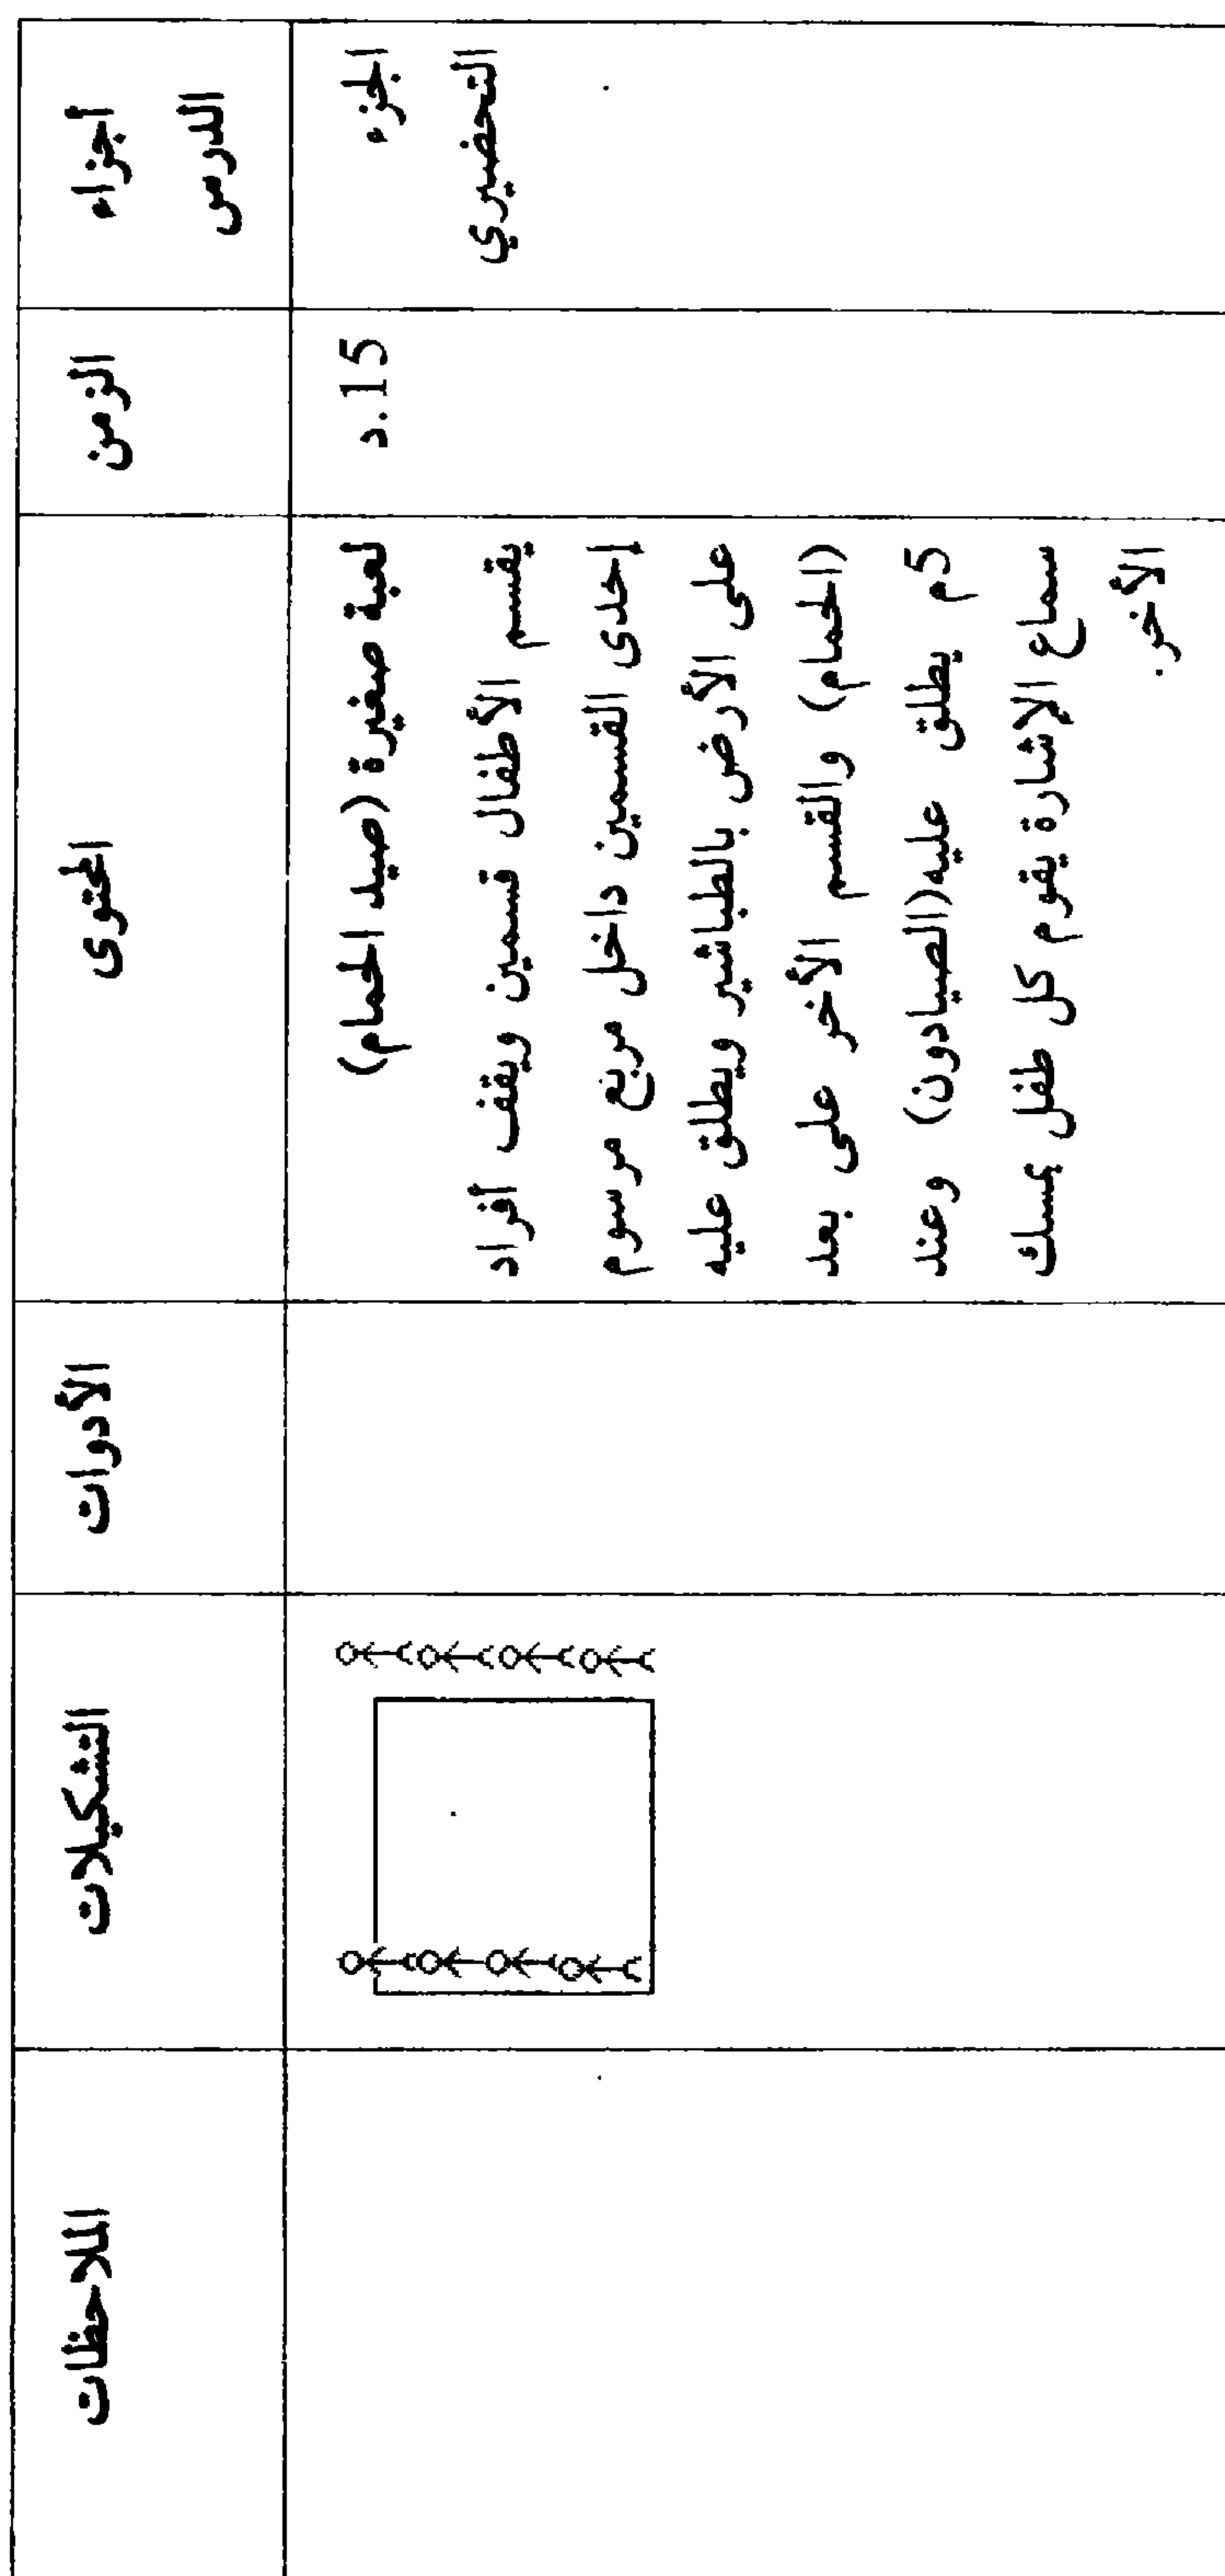 أجزاء
الدرس
الزمن
المحتوى
الأدوات
التشكيلات
الملاحظات
الجزء
التحضيري
15.د
لعبة صغيرة (صيد الحمام)
يقسم الأطفال قسمين ويقف أفراد
إحدى القسمين داخل مربع مرسوم
على الأرض بالطباشير ويطلق عليه
(الحمام) والقسم الأخر على بعد
5م يطلق عليه(الصيادون) وعند
سماع الإشارة يقوم كل طفل بمسك
الأخر.